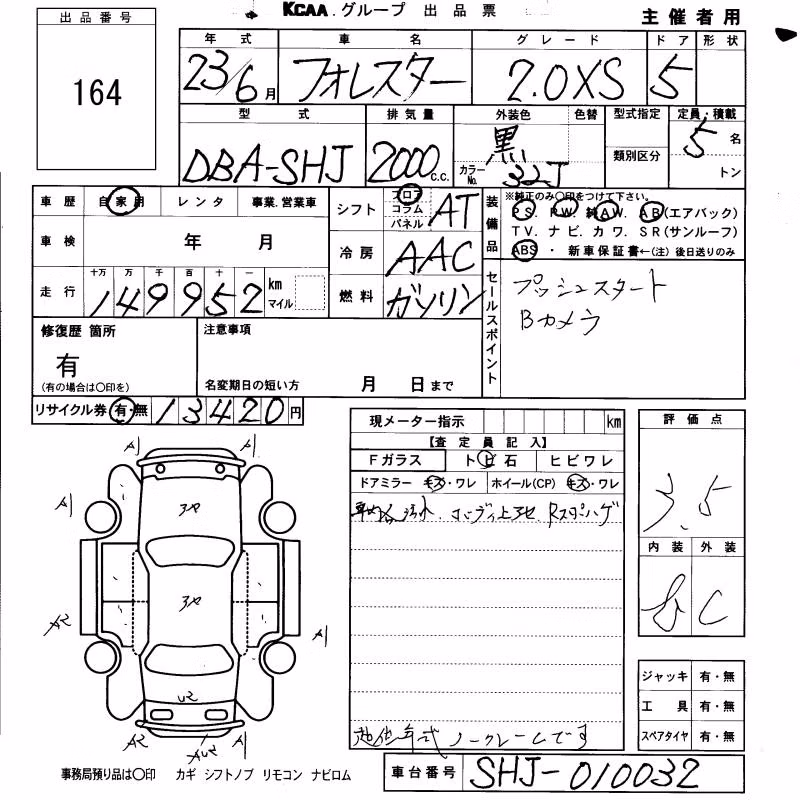 KCAA.グループ 出品票
主催者用
出品番号
164
年式 車名 グレード ドア 形状
23/6月 フォレスター 2.0XS 5
型式 排気量 外装色 色替 型式指定 定員・積載
DBA-SHJ 2000 c.c. 黒 カラーNo. 32J 類別区分 5名
トン
車歴 自家用 レンタ 事業.営業車
シフト フロア コラム パネル AT
装備品 ※純正のみ〇印をつけて下さい。
PS. PW. 純AW. AB(エアバック)
TV. ナビ. カワ. SR(サンルーフ)
ABS ・ 新車保証書←(注)後日送りのみ
車検 年 月
冷房 AAC
走行 十万 万 千 百 十 一
149952 km マイル
燃料 ガソリン
セールスポイント
プッシュスタート
Bカメラ
修復歴 箇所
有
(有の場合は〇印を)
注意事項
名変期日の短い方 月 日まで
リサイクル券 有・無 13420円
現メーター指示 km
【査定員記入】
Fガラス トビ石 ヒビワレ
ドアミラー キズ・ワレ ホイール(CP) キズ・ワレ
評価点
3.5
内装 外装
C
A1 A1
A1
3ヤ
3ヤ
A2
A1
U2
A2 A1
ジャッキ 有・無
工具 有・無
スペアタイヤ 有・無
年式 ノークレームです
事務局預り品は〇印 カギ シフトノブ リモコン ナビロム
車台番号 SHJ-010032